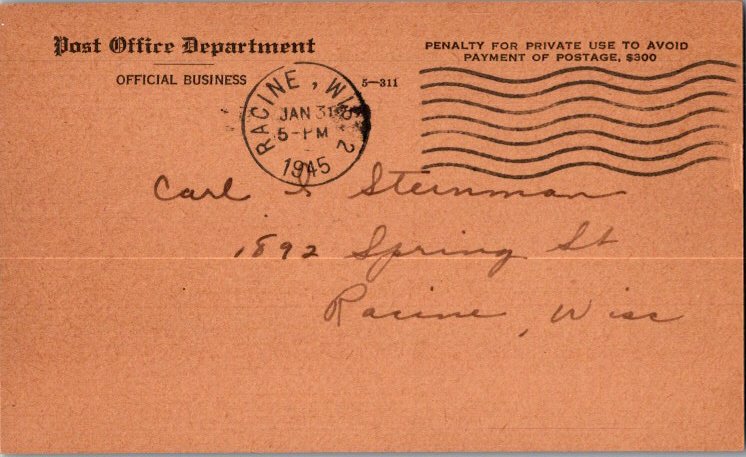 Post Office Department
OFFICIAL BUSINESS
5—311
PENALTY FOR PRIVATE USE TO AVOID
PAYMENT OF POSTAGE, $300
RACINE, WIS. 2
JAN 31
5-PM
1945
Carl S Steinman
1892 Spring St
Racine, Wisc